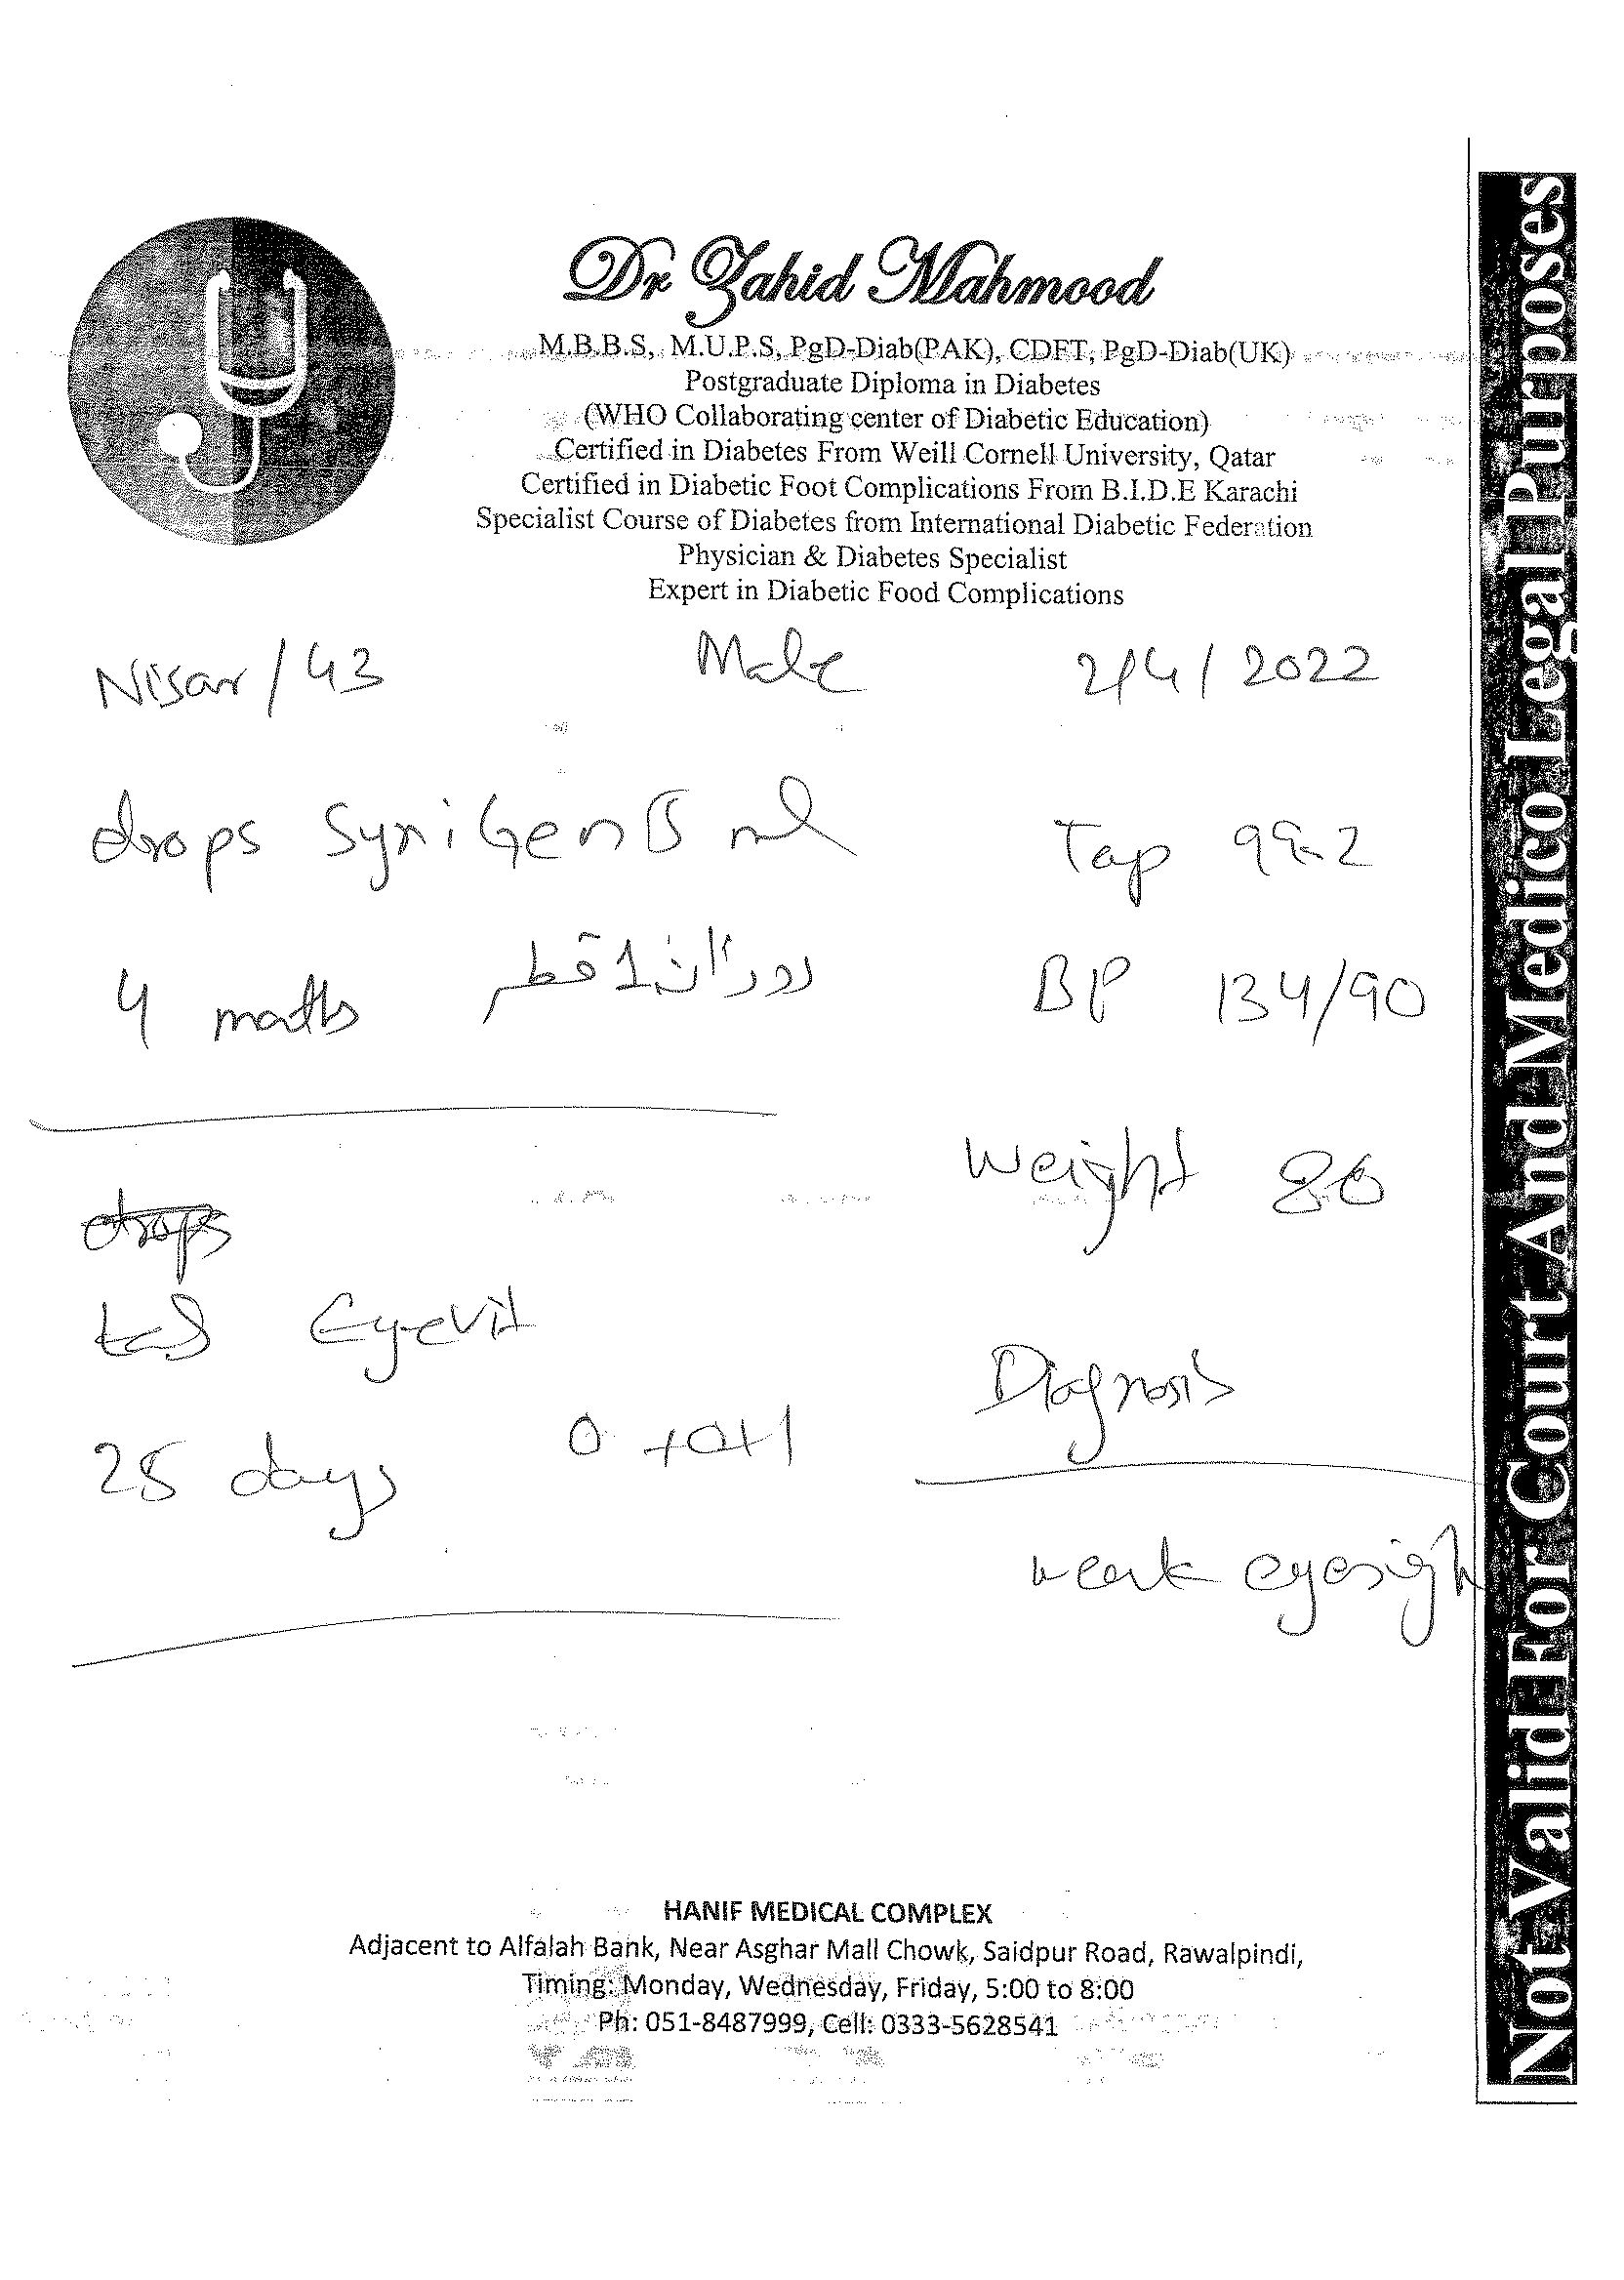 Dr Zahid Mahmood
M.B.B.S, M.U.P.S, PgD-Diab(PAK), CDFT, PgD-Diab(UK)
Postgraduate Diploma in Diabetes
(WHO Collaborating center of Diabetic Education)
Certified in Diabetes From Weill Cornell University, Qatar
Certified in Diabetic Foot Complications From B.I.D.E Karachi
Specialist Course of Diabetes from International Diabetic Federation
Physician & Diabetes Specialist
Expert in Diabetic Food Complications
Nisar / 43 Male 2/4/2022
drops SyniGen 5 ml Tap 99.2
4 months روزانہ 1 قطر BP 134/90
Weight 86
drops
tab Eyevit
Diagnosis
25 days 0+0+1
weak eyesigh
HANIF MEDICAL COMPLEX
Adjacent to Alfalah Bank, Near Asghar Mall Chowk, Saidpur Road, Rawalpindi,
Timing: Monday, Wednesday, Friday, 5:00 to 8:00
Ph: 051-8487999, Cell: 0333-5628541
Not Valid For Court And Medico Legal Purposes